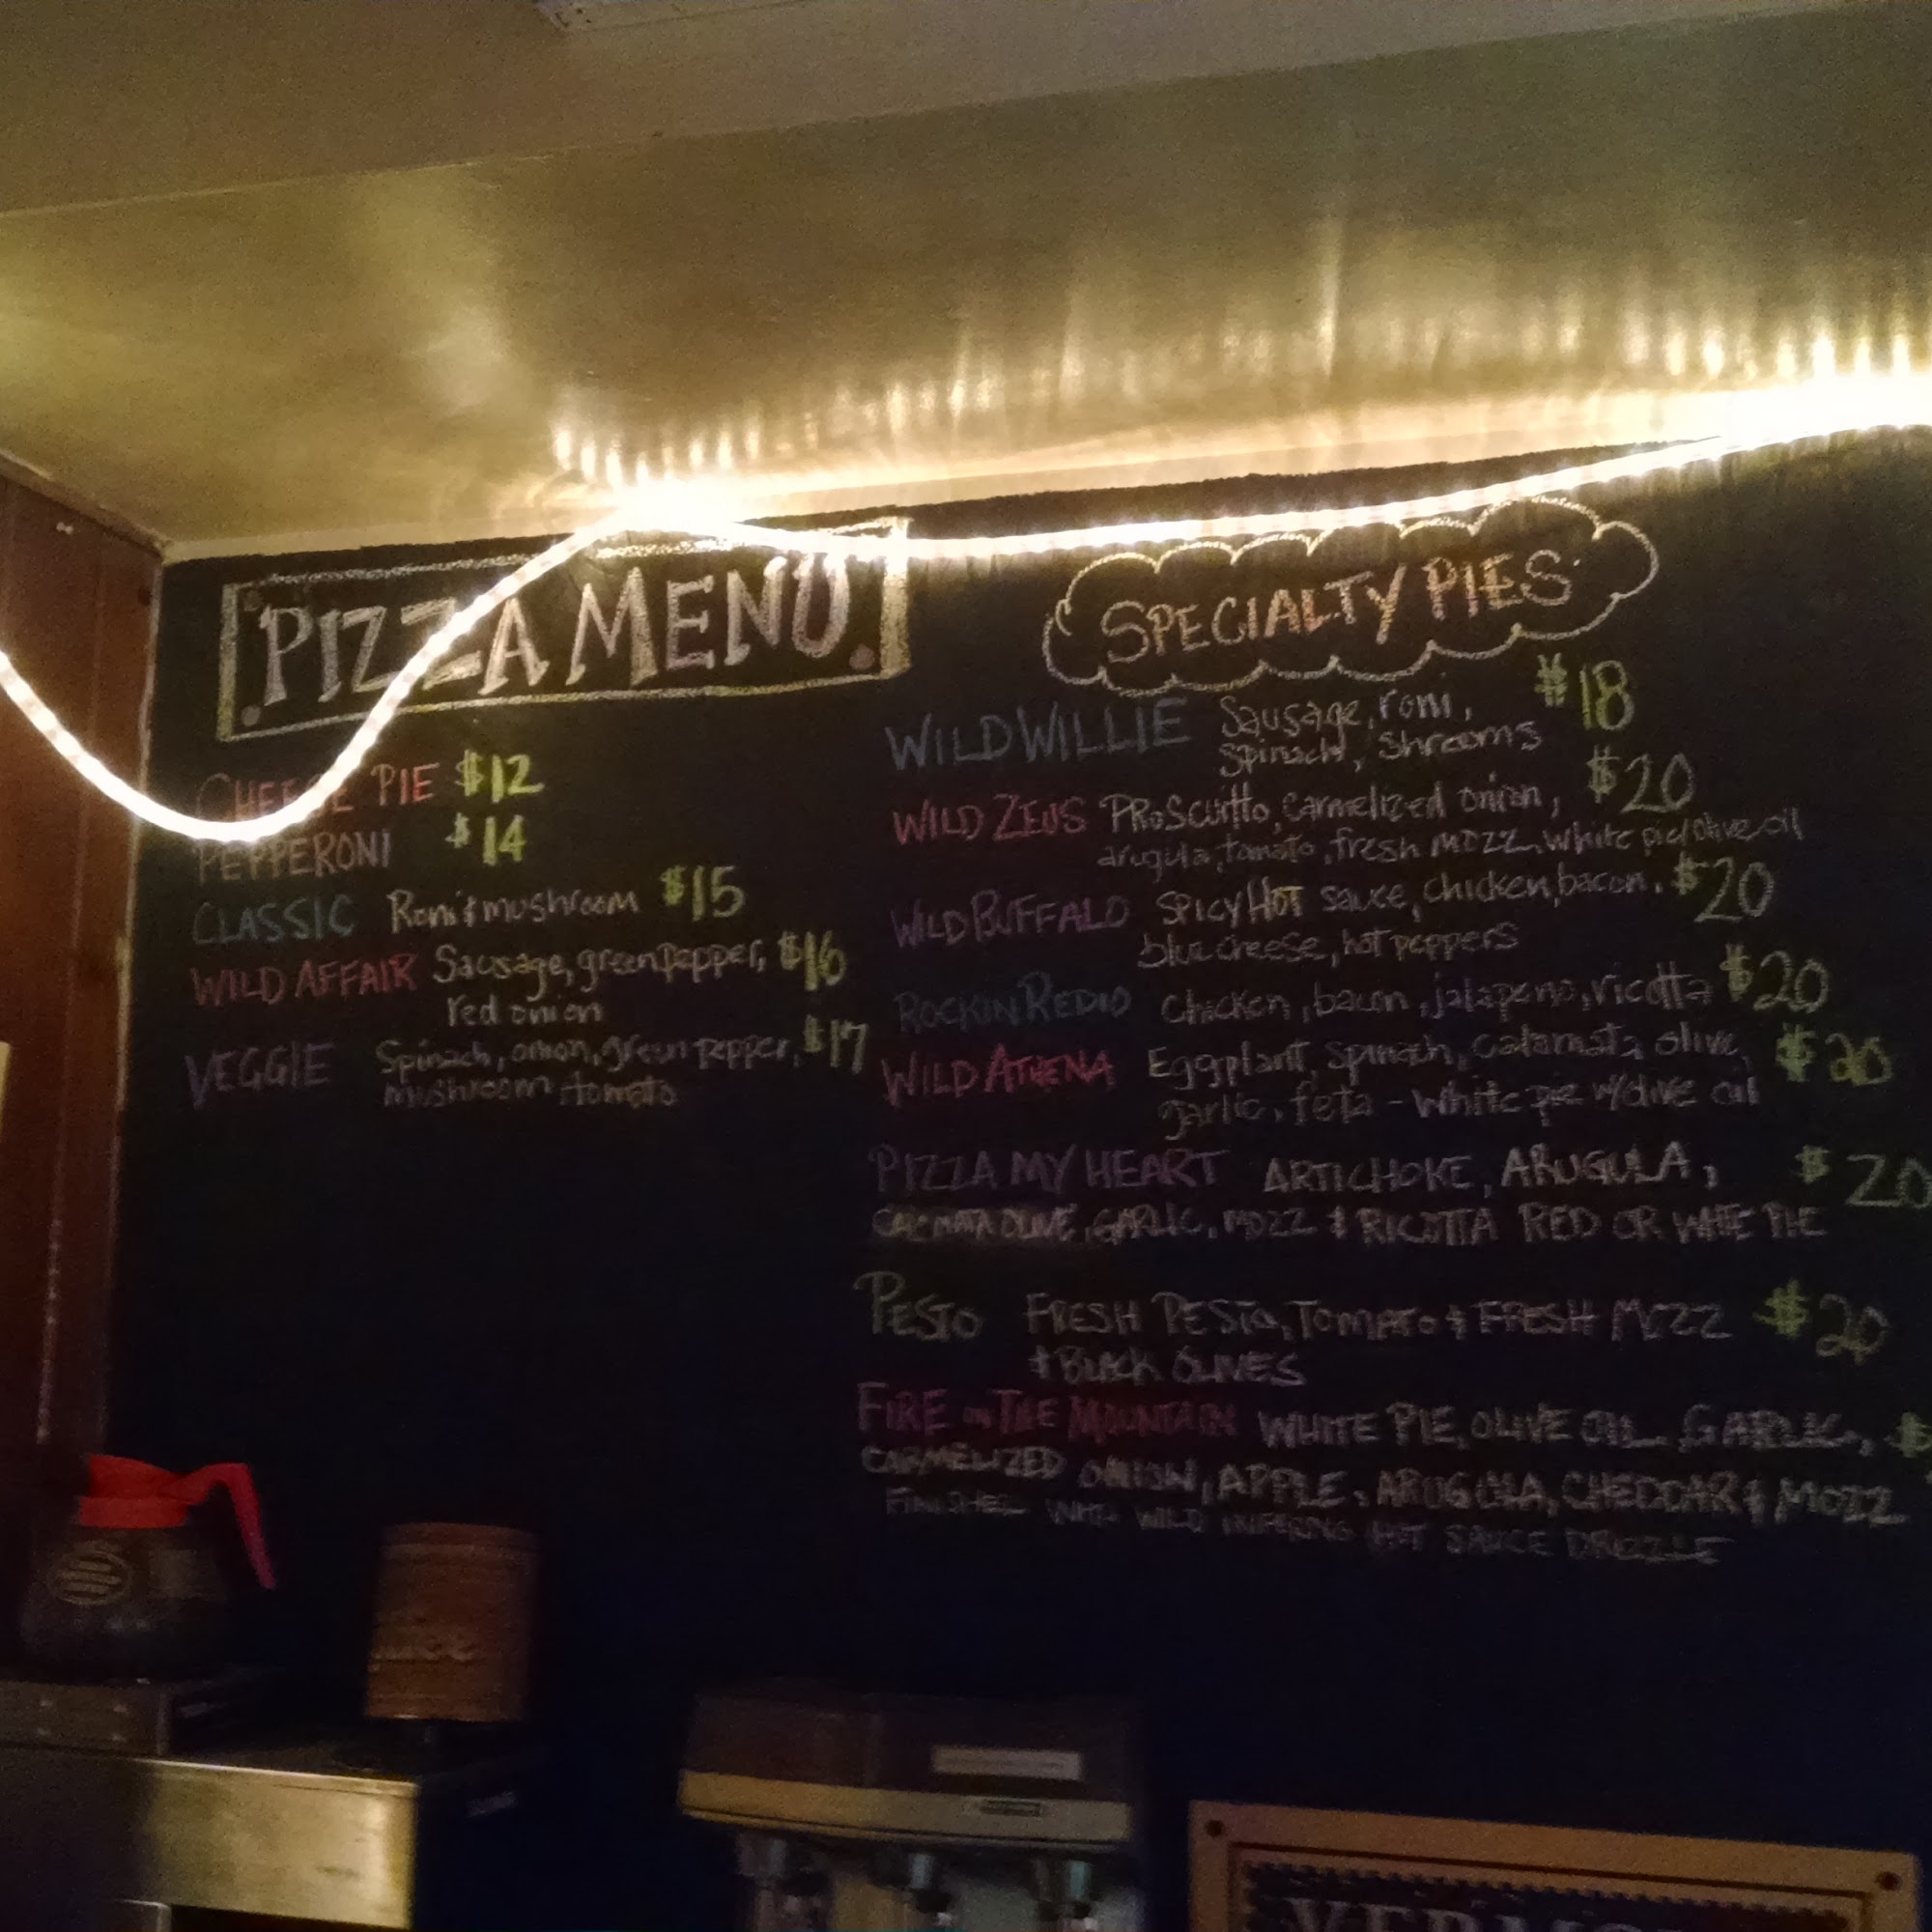 PIZZA MENU
CHEESE PIE $12
PEPPERONI $14
CLASSIC Roni & mushroom $15
WILD AFFAIR Sausage, green pepper, $16
red onion
VEGGIE Spinach, onion, green pepper, $17
mushroom tomato
SPECIALTY PIES
WILD WILLIE Sausage, roni, $18
Spinach, shrooms
WILD ZEUS PROSCUITTO, carmelized onion, $20
arugula, tomato, fresh mozz, white pie/olive oil
WILD BUFFALO SPICY HOT sauce, chicken, bacon, $20
blue cheese, hot peppers
ROCKIN REDIO chicken, bacon, jalapeno, ricotta $20
WILD ATHENA Eggplant, spinach, calamata olive, $20
garlic, feta - white pie w/olive oil
PIZZA MY HEART ARTICHOKE, ARUGULA, $20
CALAMATA OLIVE, GARLIC, MOZZ & RICOTTA RED OR WHITE PIE
PESTO FRESH PESTO, TOMATO & FRESH MOZZ $20
& BLACK OLIVES
FIRE ON THE MOUNTAIN WHITE PIE, OLIVE OIL, GARLIC, $
CARMELIZED ONION, APPLE, ARUGULA, CHEDDAR & MOZZ
FINISHED WITH WILD HOT SAUCE DRIZZLE